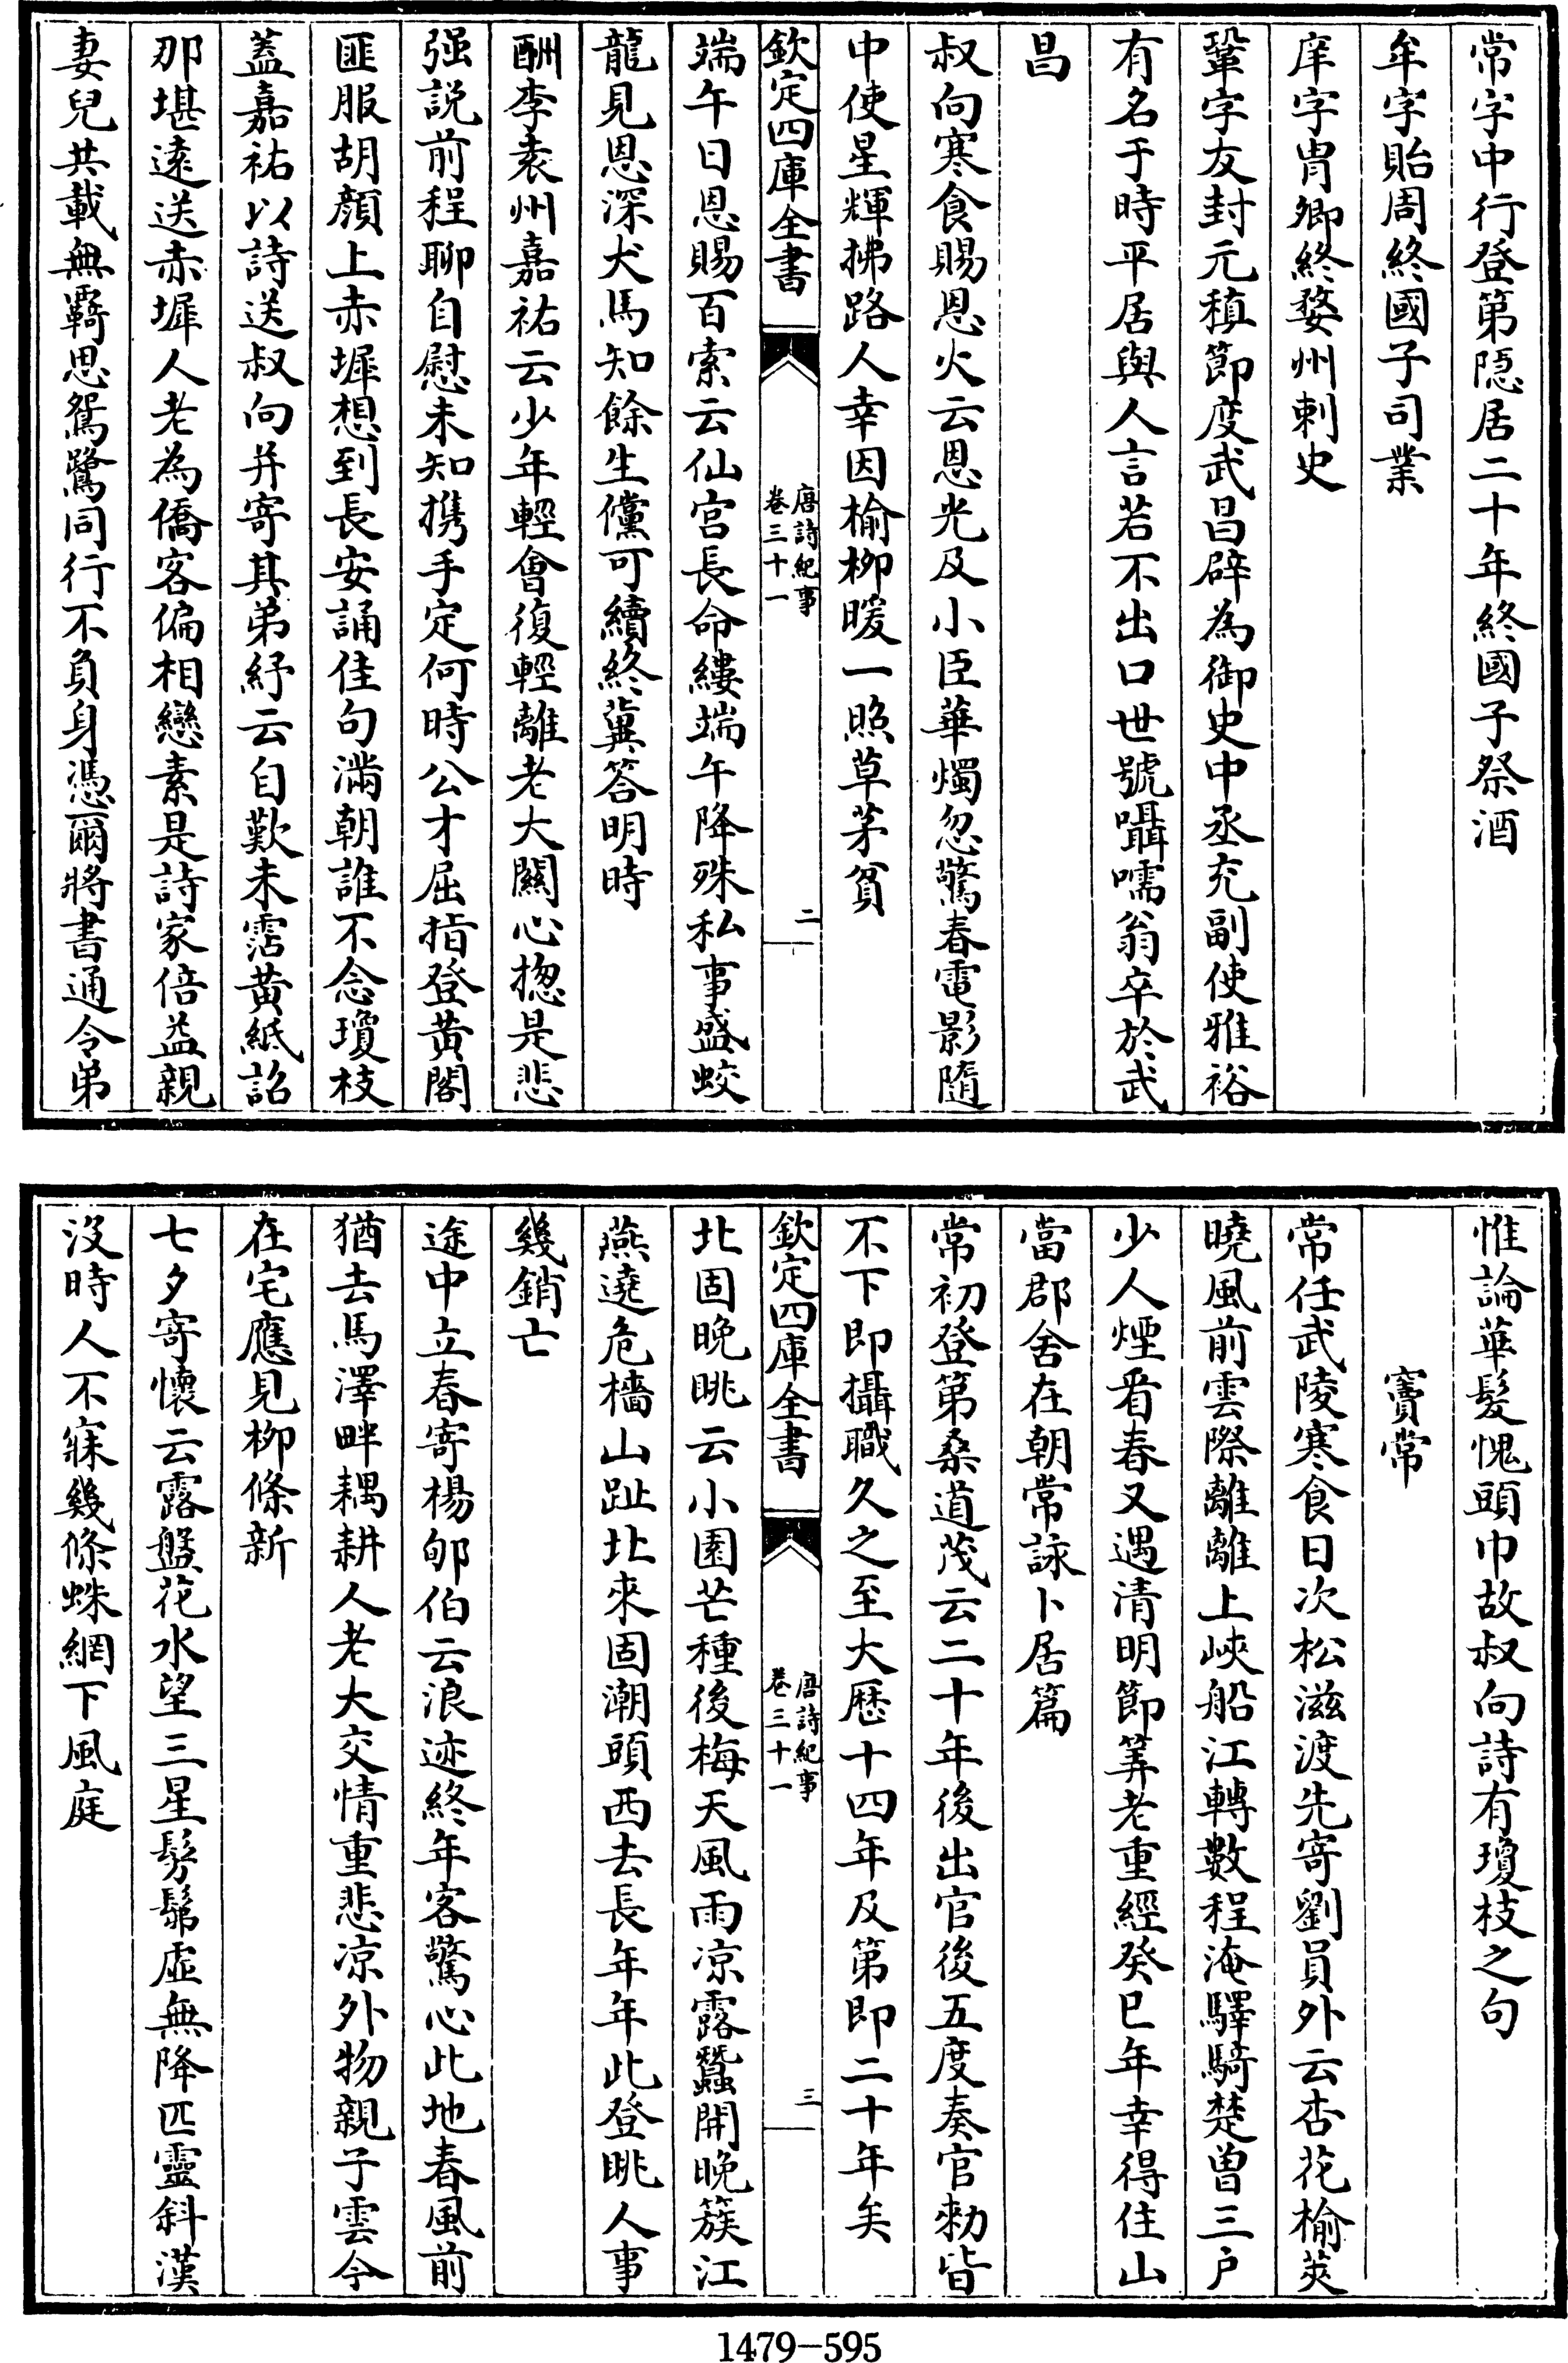 常字中行登第隠居二十年終國子祭酒
牟字貽周終國子司業
庠字胄卿終婺州刺史
鞏字友封元稹節度武昌辟為御史中丞充副使雅裕
有名于時平居與人言若不出口世號囁嚅翁卒於武
昌
叔向寒食賜恩火云恩光及小臣華燭忽驚春電影隨
中使星輝拂路人幸因榆柳暖一照草茅貧
欽定四庫全書
唐詩紀事
卷三十一
二
端午日恩賜百索云仙宫長命縷端午降殊私事盛蛟
龍見恩深犬馬知餘生儻可續終冀答明時
酬李袁州嘉祐云少年輕會復輕離老大關心揔是悲
强説前程聊自慰未知携手定何時公才屈指登黄閣
匪服胡顔上赤墀想到長安誦佳句滿朝誰不念瓊枝
蓋嘉祐以詩送叔向并寄其弟紓云自歎未霑黄紙詔
那堪遠送赤墀人老為僑客偏相戀素是詩家倍益親
妻兒共載無羇思鴛鷺同行不負身憑爾將書通令弟
惟論華髮愧頭巾故叔向詩有瓊枝之句
竇常
常任武陵寒食日次松滋渡先寄劉員外云杏花榆莢
曉風前雲際離離上峽船江轉數程淹驛騎楚曽三户
少人煙㸔春又遇清明節筭老重經癸巳年幸得住山
當郡舍在朝常詠卜居篇
常初登第桑道茂云二十年後出官後五度奏官勅皆
不下即攝職久之至大厯十四年及第即二十年矣
欽定四庫全書
唐詩紀事
卷三十一
三
北固晚眺云小園芒種後梅天風雨凉露蠶開晚簇江
燕遶危檣山趾北來固潮頭西去長年年此登眺人事
幾銷亡
途中立春寄楊郇伯云浪迹終年客驚心此地春風前
猶去馬澤畔耦耕人老大交情重悲凉外物親子雲今
在宅應見柳條新
七夕寄懷云露盤花水望三星髣髴虚無降匹靈斜漢
沒時人不寐幾條蛛網下風庭
1479-595